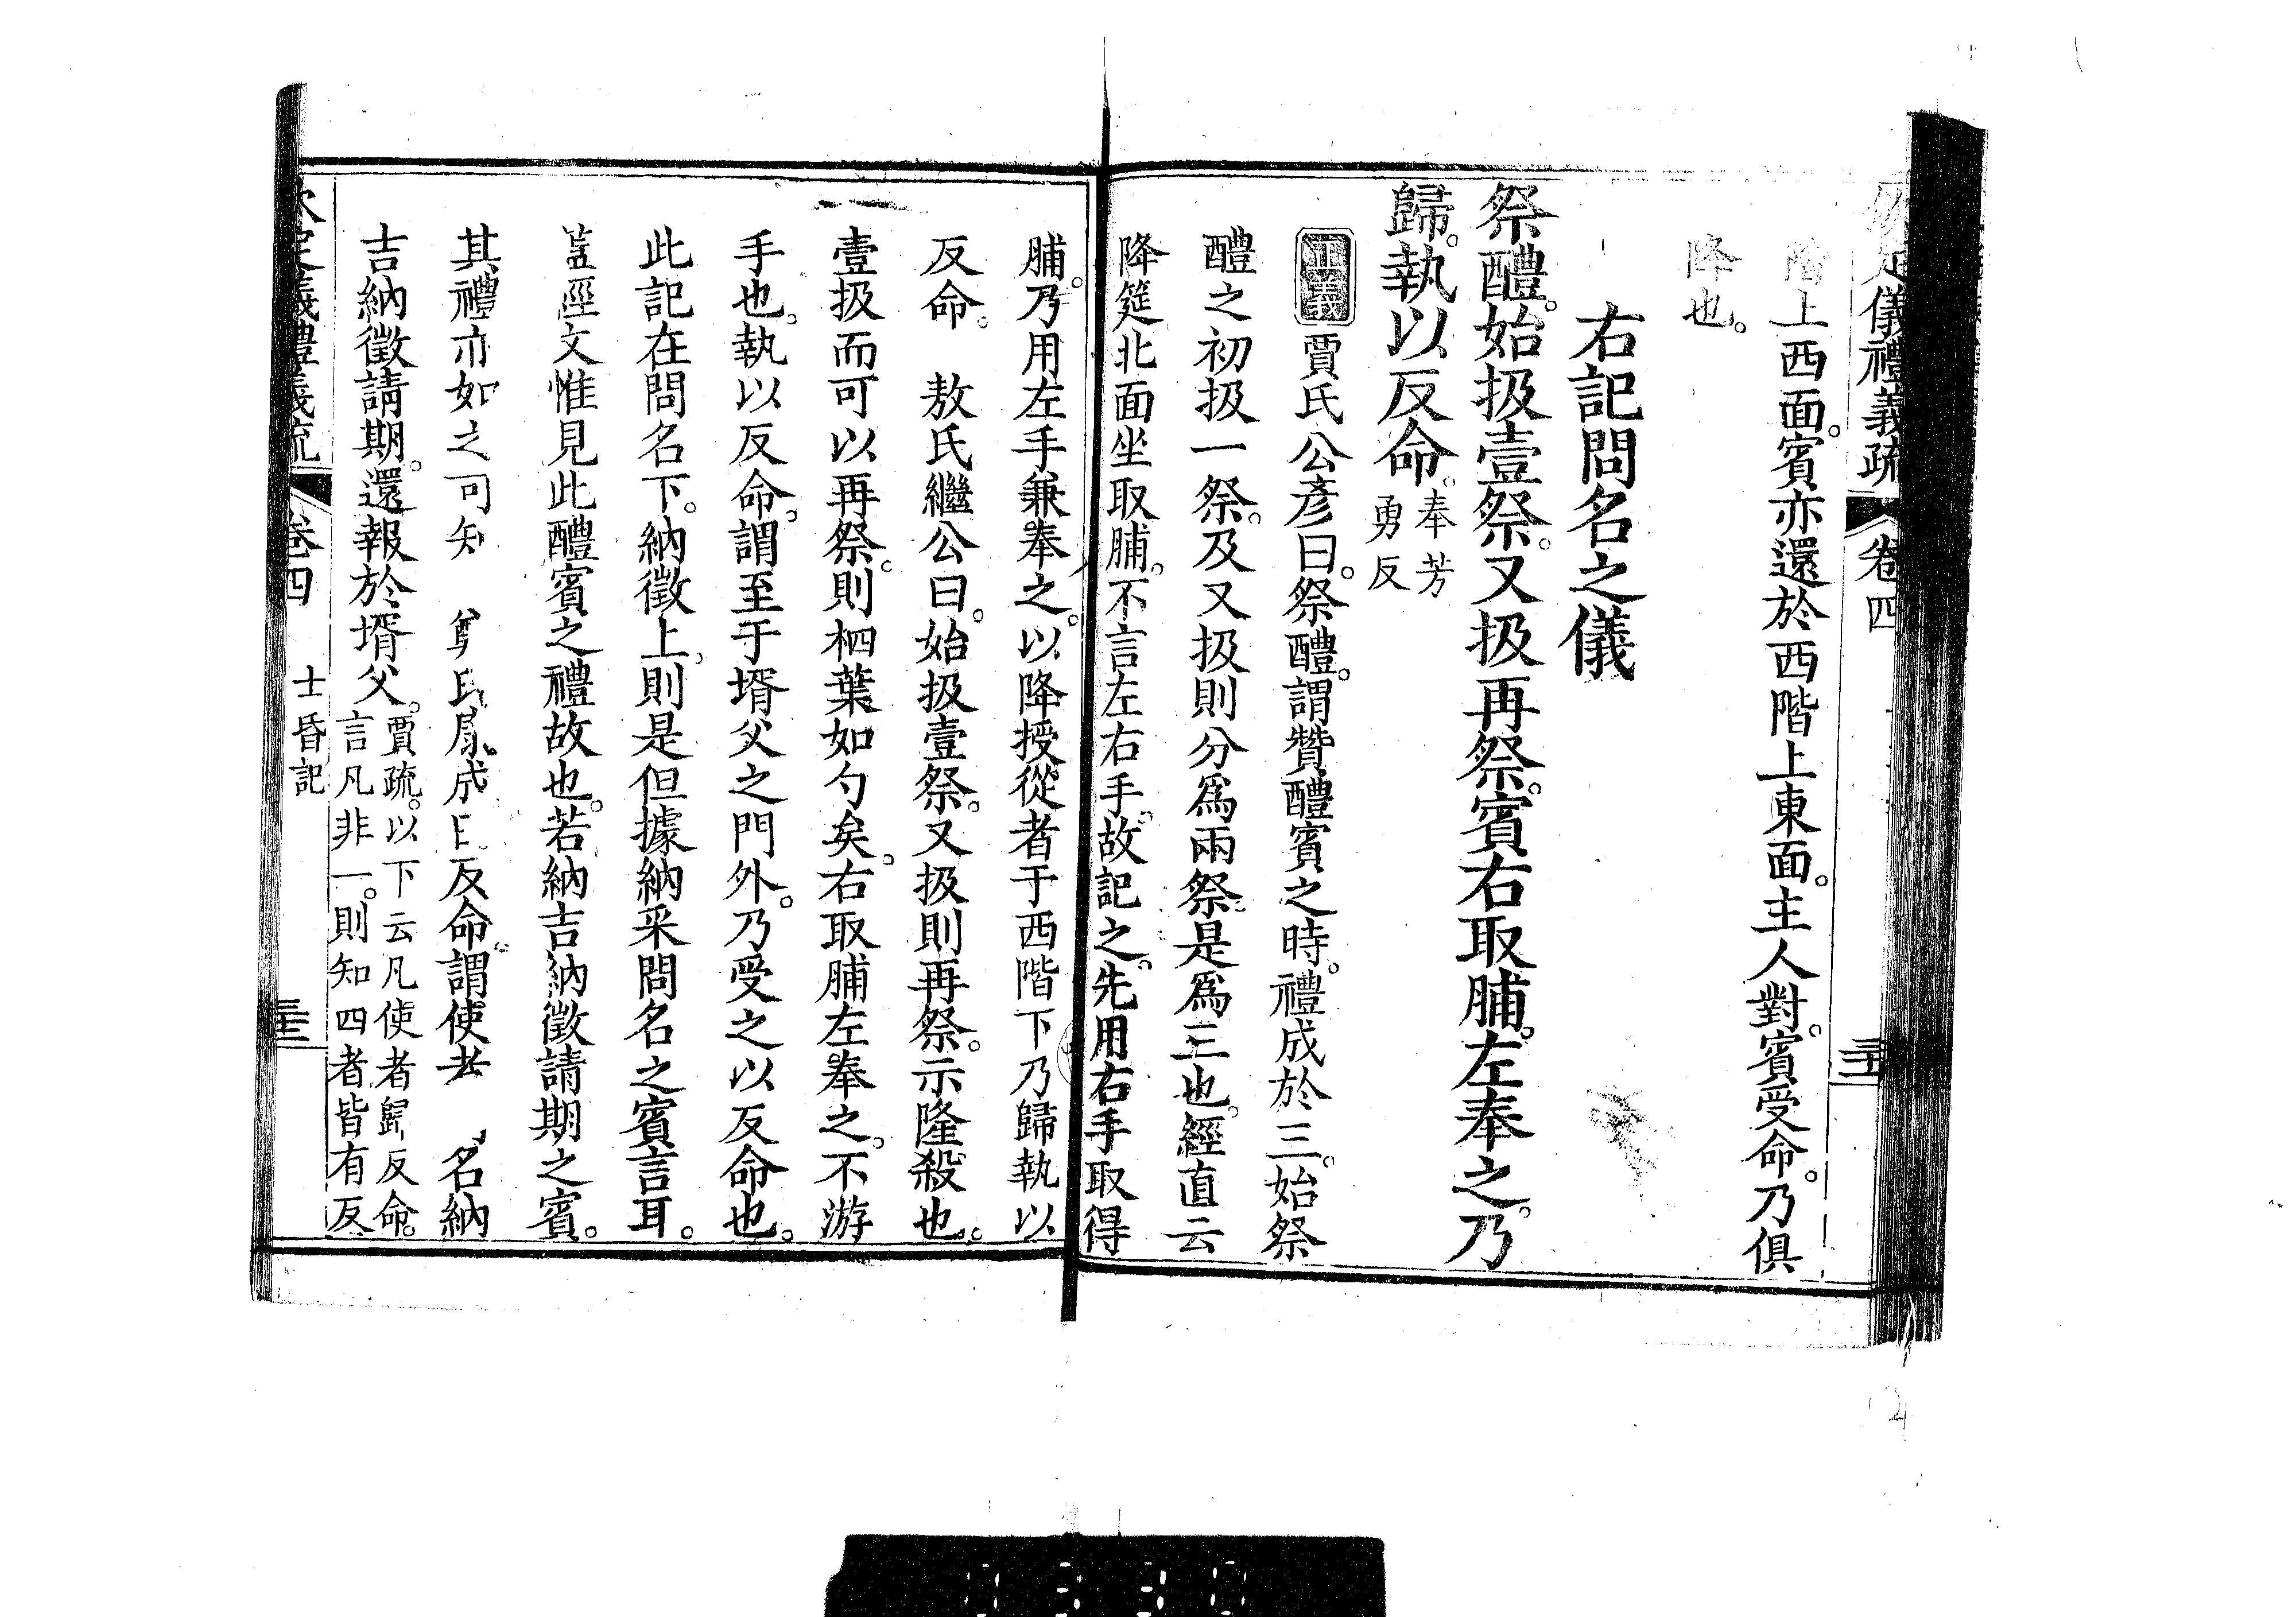 欽定儀禮義疏 卷四
階上西面。賓亦還於西階上東面。主人對。賓受命。乃俱
降也。
右記問名之儀
祭醴。始扱壹祭。又扱再祭。賓右取脯。左奉之。乃
歸。執以反命。奉芳
勇反
正義 賈氏公彥曰。祭醴。謂贊醴賓之時。禮成於三。始祭
醴之初扱一祭。及又扱則分為兩祭。是為三也。經直云
降筵北面坐取脯。不言左右手。故記之。先用右手取得
脯。乃用左手兼奉之。以降授從者于西階下乃歸執以
反命。 敖氏繼公曰。始扱壹祭。又扱則再祭。示隆殺也。
壹扱而可以再祭。則柶葉如勺矣。右取脯左奉之。不游
手也。執以反命。謂至于壻父之門外。乃受之以反命也。
此記在問名下。納徵上。則是但據納采問名之賓言耳。
蓋經文惟見此醴賓之禮故也。若納吉納徵請期之賓。
其禮亦如之可知 鄭氏康成曰反命。謂使者 名納
吉納徵請期。還報於壻父。賈疏。以下云凡使者歸反命。
言凡非一。則知四者皆有反
欽定儀禮義疏 卷四 士昏記